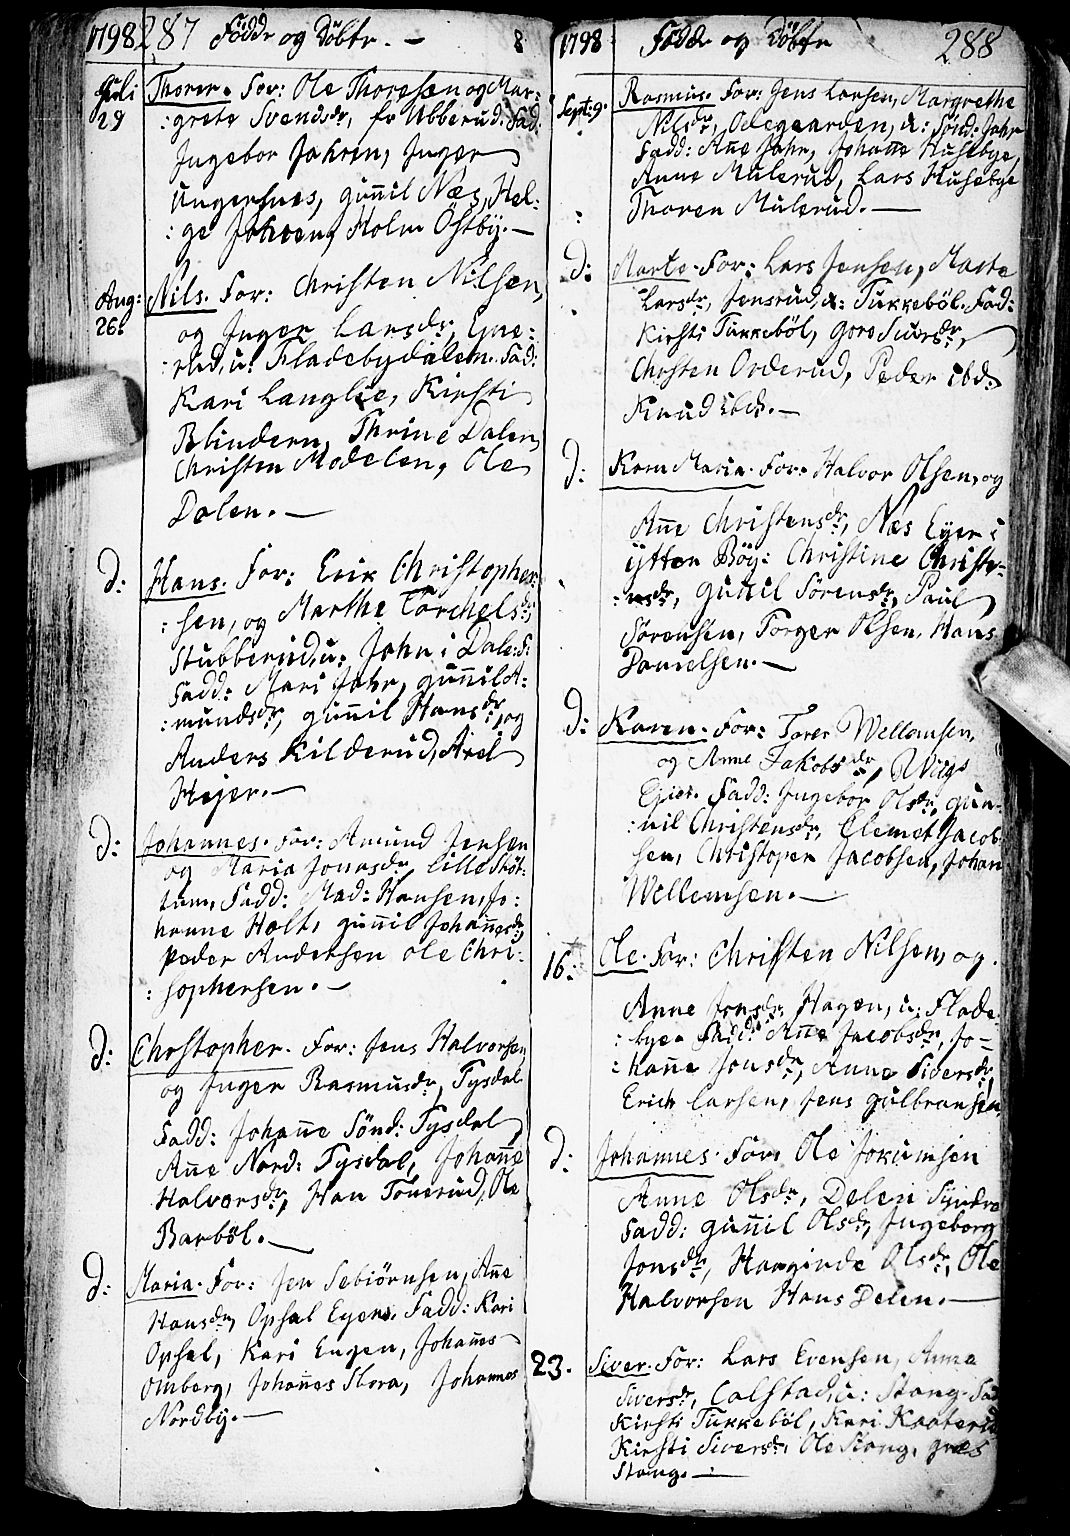 1798 287 Födde og Döbte. - 8
Juli 29 Thorer. For: Ole Thoresen og Mar:
:grete Svendsdr, fr Ubberud: Fad:
Ingebor Jahren, Inger
Ungersnes, guñil Næs, Hel:
:ge Johren, Holm Östbÿ. -
Aug: 26. Nils. For: Christen Nilsen,
og Inger Larsdr, Eyne:
:rud, u: Fladebydalen. Fad:
Kari Langlie, Kirsti
Blindern, Thrine Dalen,
Christen Modelen, Ole
Dalen. -
d: Hans. For: Erik Christopher:
:sen, og Marthe Torchelsdr,
Stubberud, u: John i Dale: S:
Fadd: Mari Jahr, guñil A:
:mundsdr, guñil Hansdr, og
Anders Kilderud, Axel
Hejer. -
d: Johannes. For: Amund Jensen
og Maria Jonasdr, Lille Sköt:
tum, Fadd: Mad: Hansen, Jo:
hanne Holt, guñil Johañesdr,
Peder Andersen Ole Chri:
:sophersen. -
d: Christopher. For: Jens Halvorsen,
og Inger Rasmusdr, Tysdal
Fadd: Johañe Sönd: Tysdal,
Añe Nord: Tysdal, Johañe
Halvorsdr, Han Tonerud, Ole
Barböl. -
d: Maria. For: Jen Sebiörnsen, Añe
Hansdr, Opsal Eyer. Fadd: Kari
Opsal, Kari Engen, Johañes
Omberg, Johañes Stora, Johannes
Nordbÿ. -
1798 Födde og Döbte 288
Sept: 9. Rasmus. For: Jens Larsen, Margrethe
Nilsdr, Odegaarden, u: Sönd: Jahr
Fadd: Añe Jahr, Johañe Husebye,
Anne Mulerud, Lars Husebye
Thoren Mulerud. -
d: Marte. For: Lars Jensen, Marte
Larsdr, Jensrud, u: Tukkeböl. Fad:
Kirsti Tukkeböl, Gore Siversdr,
Christen Orderud, Peder ibd:
Knud ibd:. -
d: Karn Maria. For: Halvor Olsen, og
Añe Christensdr, Næs Eyer i
ÿtter Böÿ: Christine Christe-
:nsdr, guñil Sörensdr, Paul
Sörensen, Torger Olsen, Hans
Danielsen. -
d: Karen. For: Torer Wellomsen,
og Anne Jakobsdr,
Eier. Fadd: Ingebor Olsdr, gun-
:nil Christensdr, Clemet Jacob:
sen, Christoper Jacobsen, Johan
Wellemsen. -
16: Ole. For: Christen Nilsen, og
Anne Jonsdr, Hagen, u: Flade:
:bye. Fadd: Añe Jacobsdr, Jo=
:hañe Jonsdr, Anne Siversdr,
Erich Larsen, Jens gulbransen
d: Johannes. For: Ole Jokumsen
Anne Olsdr, Delen Syndre
Fadd: guñil Olsdr, Ingeborg
Jonsdr, Olsdr, Ole
Halvorsen Hans Delen. -
23. Siver. For: Lars Evensen, Anne
Siversdr, Calstad, u: Stang. Fad
Kirsti Tukkeböl, Kari Kraaterud
Kirsti Siversdr, Ole Stang,
Stang. -